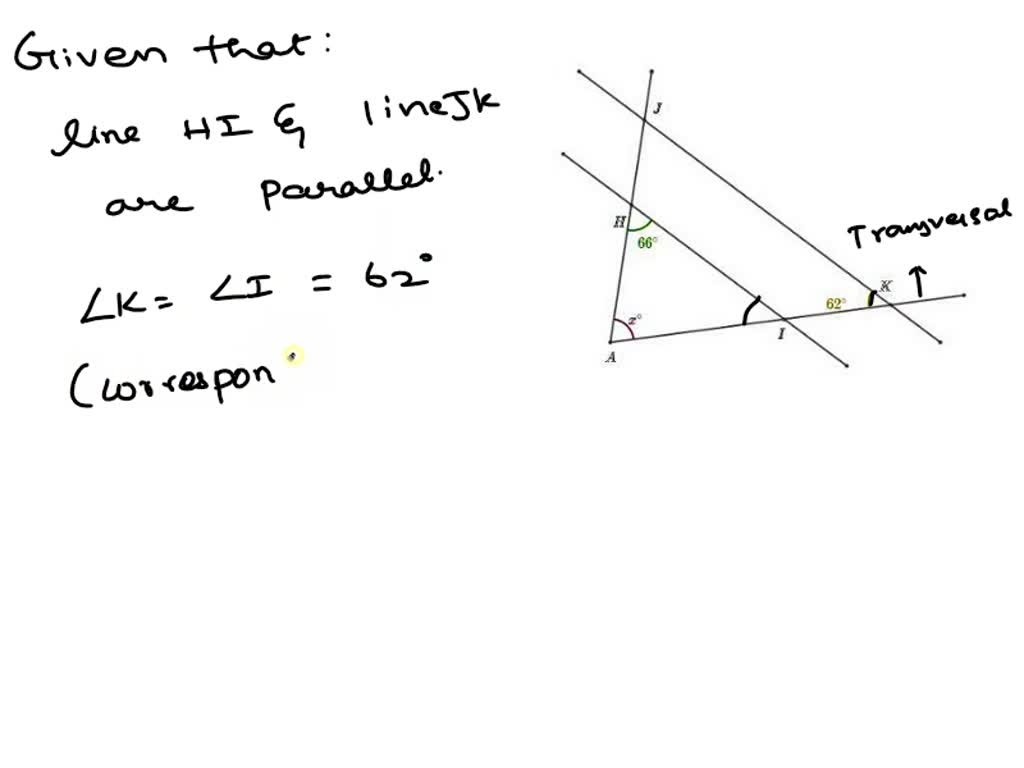 Given that:
line HI & line JK
are parallel.
∠K = ∠I = 62°
(correspon
J
H
66°
Transversal
K
62°
x°
I
A